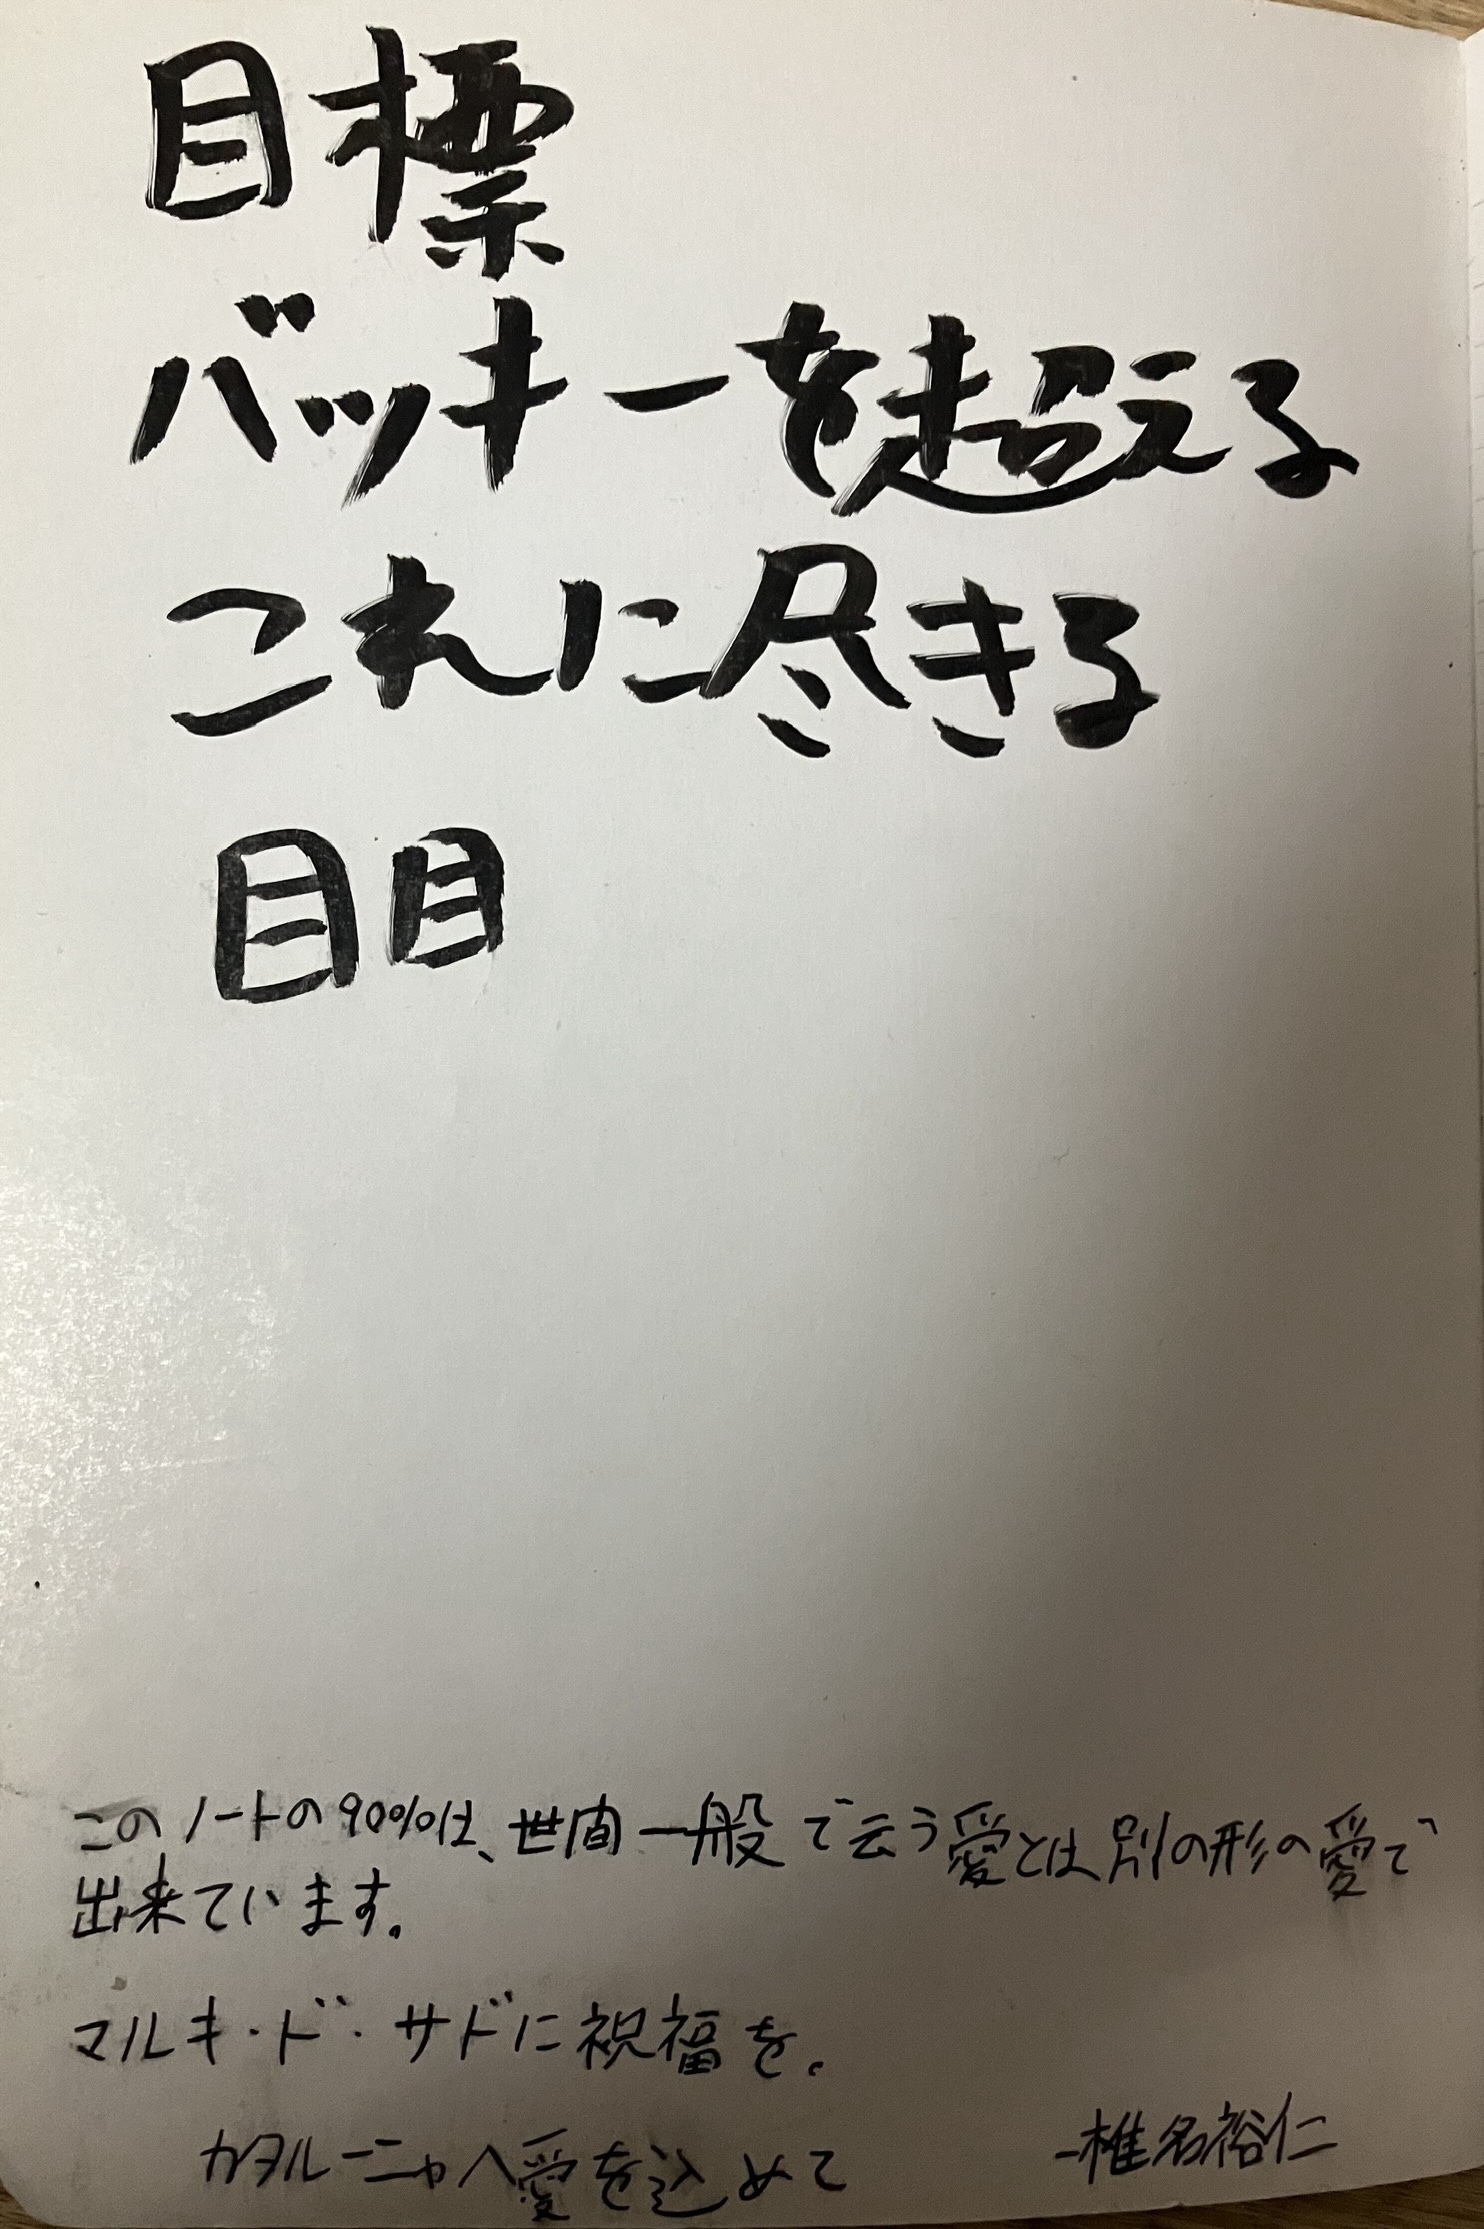 目標
バッキーを超える
これに尽きる
目目
このノートの90%は、世間一般で云う愛とは別の形の愛で
出来ています。
マルキ・ド・サドに祝福を。
カタルーニャへ愛を込めて
-椎名裕仁